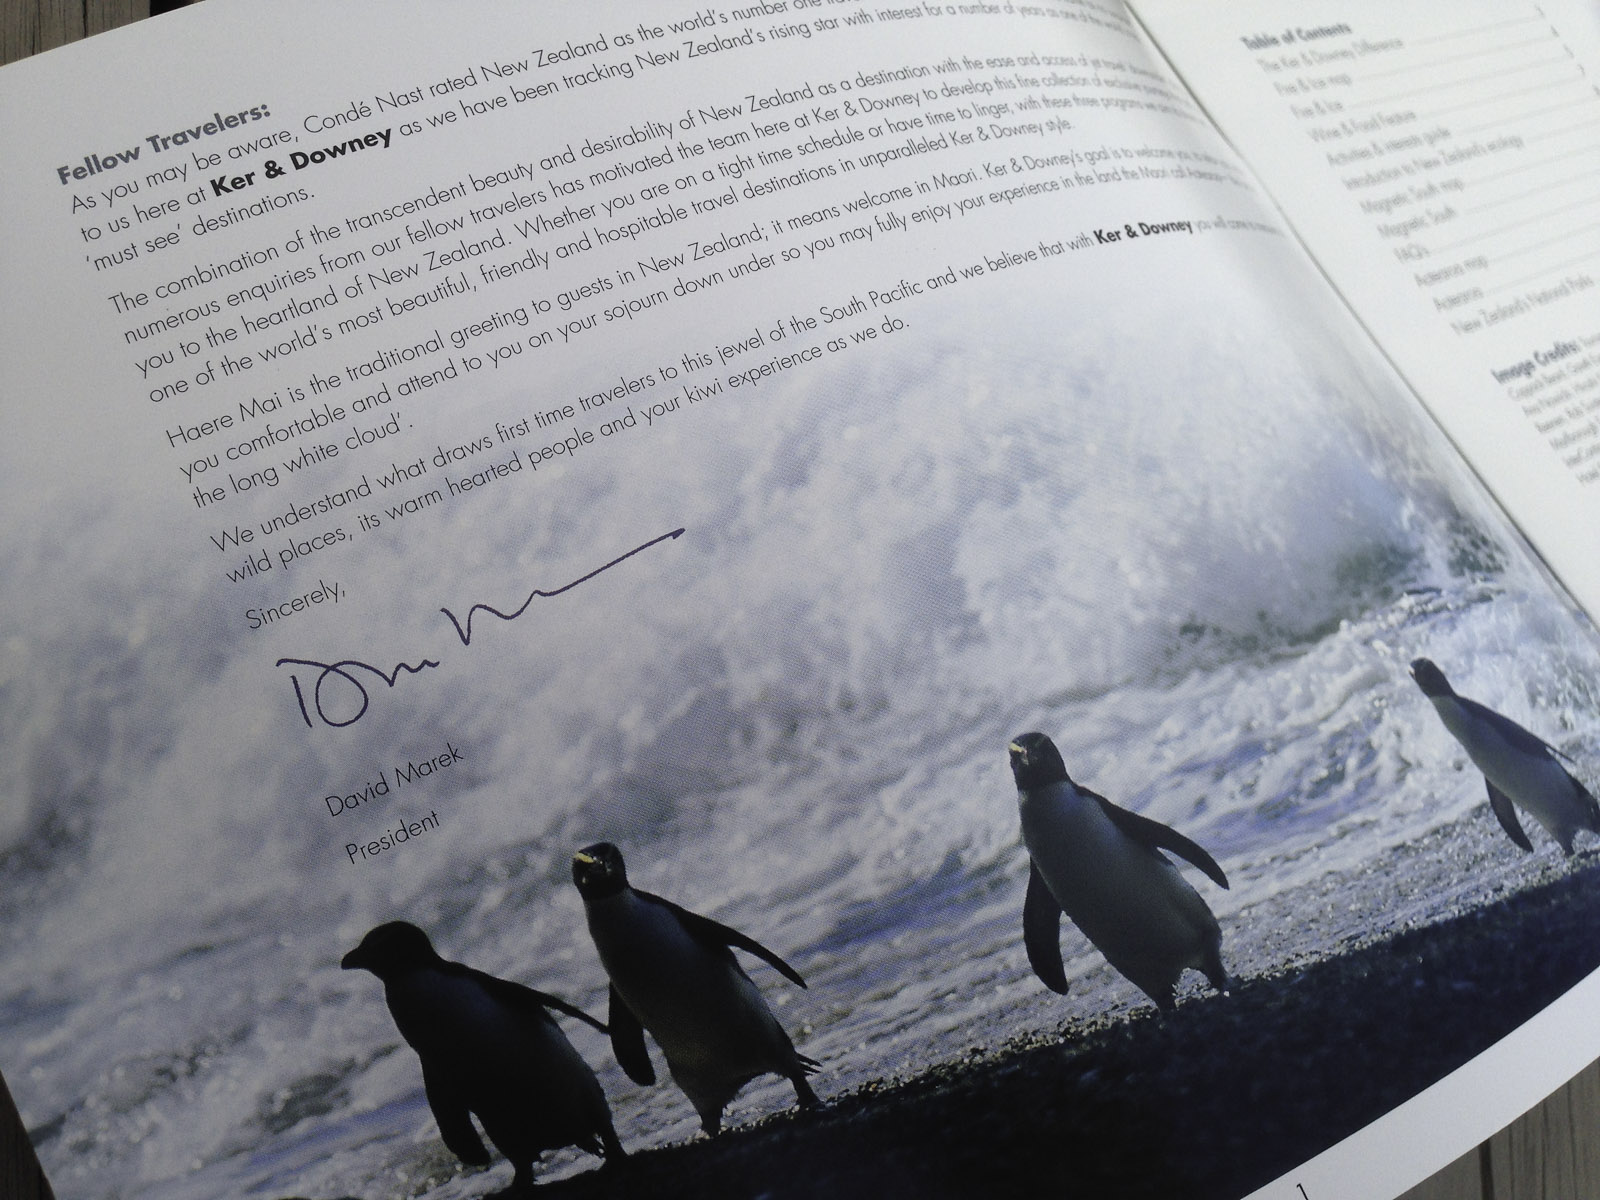 Fellow Travelers:
As you may be aware, Condé Nast rated New Zealand as the world's number one
to us here at Ker & Downey as we have been tracking New Zealand's rising star with interest for a number of years as one of the
'must see' destinations.
The combination of the transcendent beauty and desirability of New Zealand as a destination with the ease and access of jet travel
numerous enquiries from our fellow travelers has motivated the team here at Ker & Downey to develop this fine collection of exclusive
you to the heartland of New Zealand. Whether you are on a tight time schedule or have time to linger, with these three programs we
one of the world's most beautiful, friendly and hospitable travel destinations in unparalleled Ker & Downey style.
Haere Mai is the traditional greeting to guests in New Zealand; it means welcome in Maori. Ker & Downey's goal is to welcome you,
you comfortable and attend to you on your sojourn down under so you may fully enjoy your experience in the land the Maori call Aotearoa
the long white cloud'.
We understand what draws first time travelers to this jewel of the South Pacific and we believe that with Ker & Downey you will come
wild places, its warm hearted people and your kiwi experience as we do.
Sincerely,
David Marek
President
1
Table of Contents
The Ker & Downey Difference
Fire & Ice map
Fire & Ice
Wine & Food Feature
Activities & interests guide
Introduction to New Zealand's ecology
Magnetic South map
Magnetic South
FAQ's
Aotearoa map
Aotearoa
New Zealand's National Parks
Image Credits: